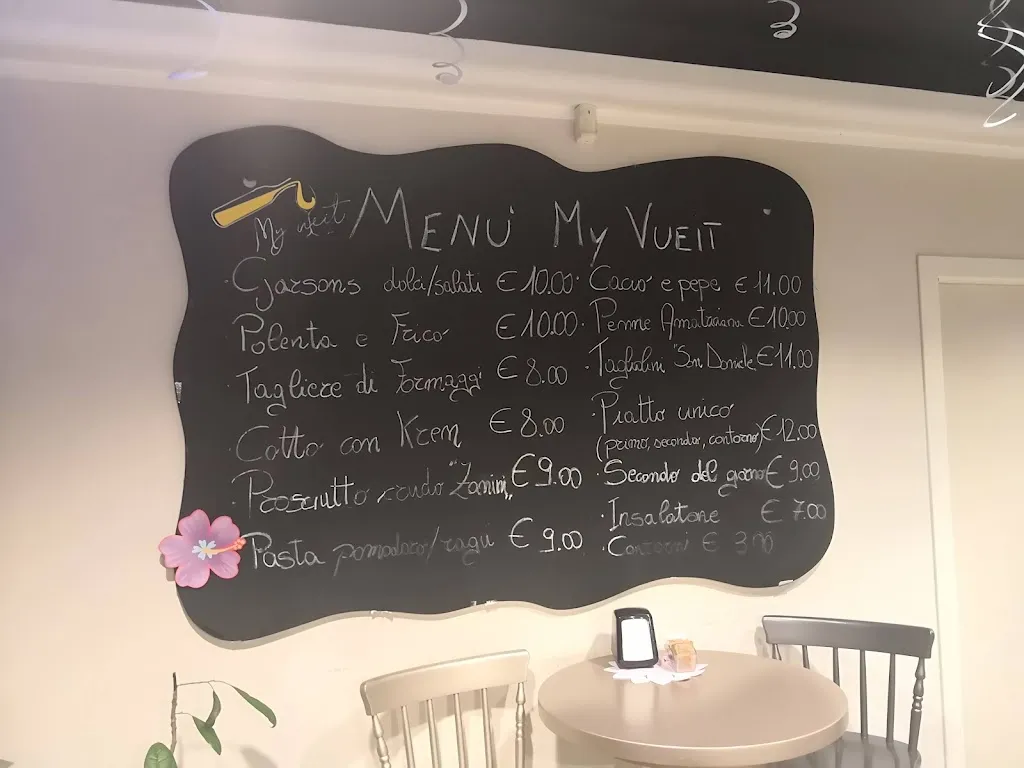 My vueit
MENÙ My VUEIT
· Cjarsons dolci/salati € 10.00
· Polenta e Frico € 10.00
· Tagliere di Formaggi € 8.00
· Cotto con Kren € 8.00
· Prosciutto crudo "Zanini" € 9.00
· Pasta pomodoro/ragù € 9.00
· Cacio e pepe € 11.00
· Penne Amatriciana € 10.00
· Tagliolini "San Daniele € 11.00
· Piatto unico
(primo, secondo, contorno) € 12.00
· Secondo del giorno € 9.00
· Insalatone € 7.00
· Contorni € 3.00